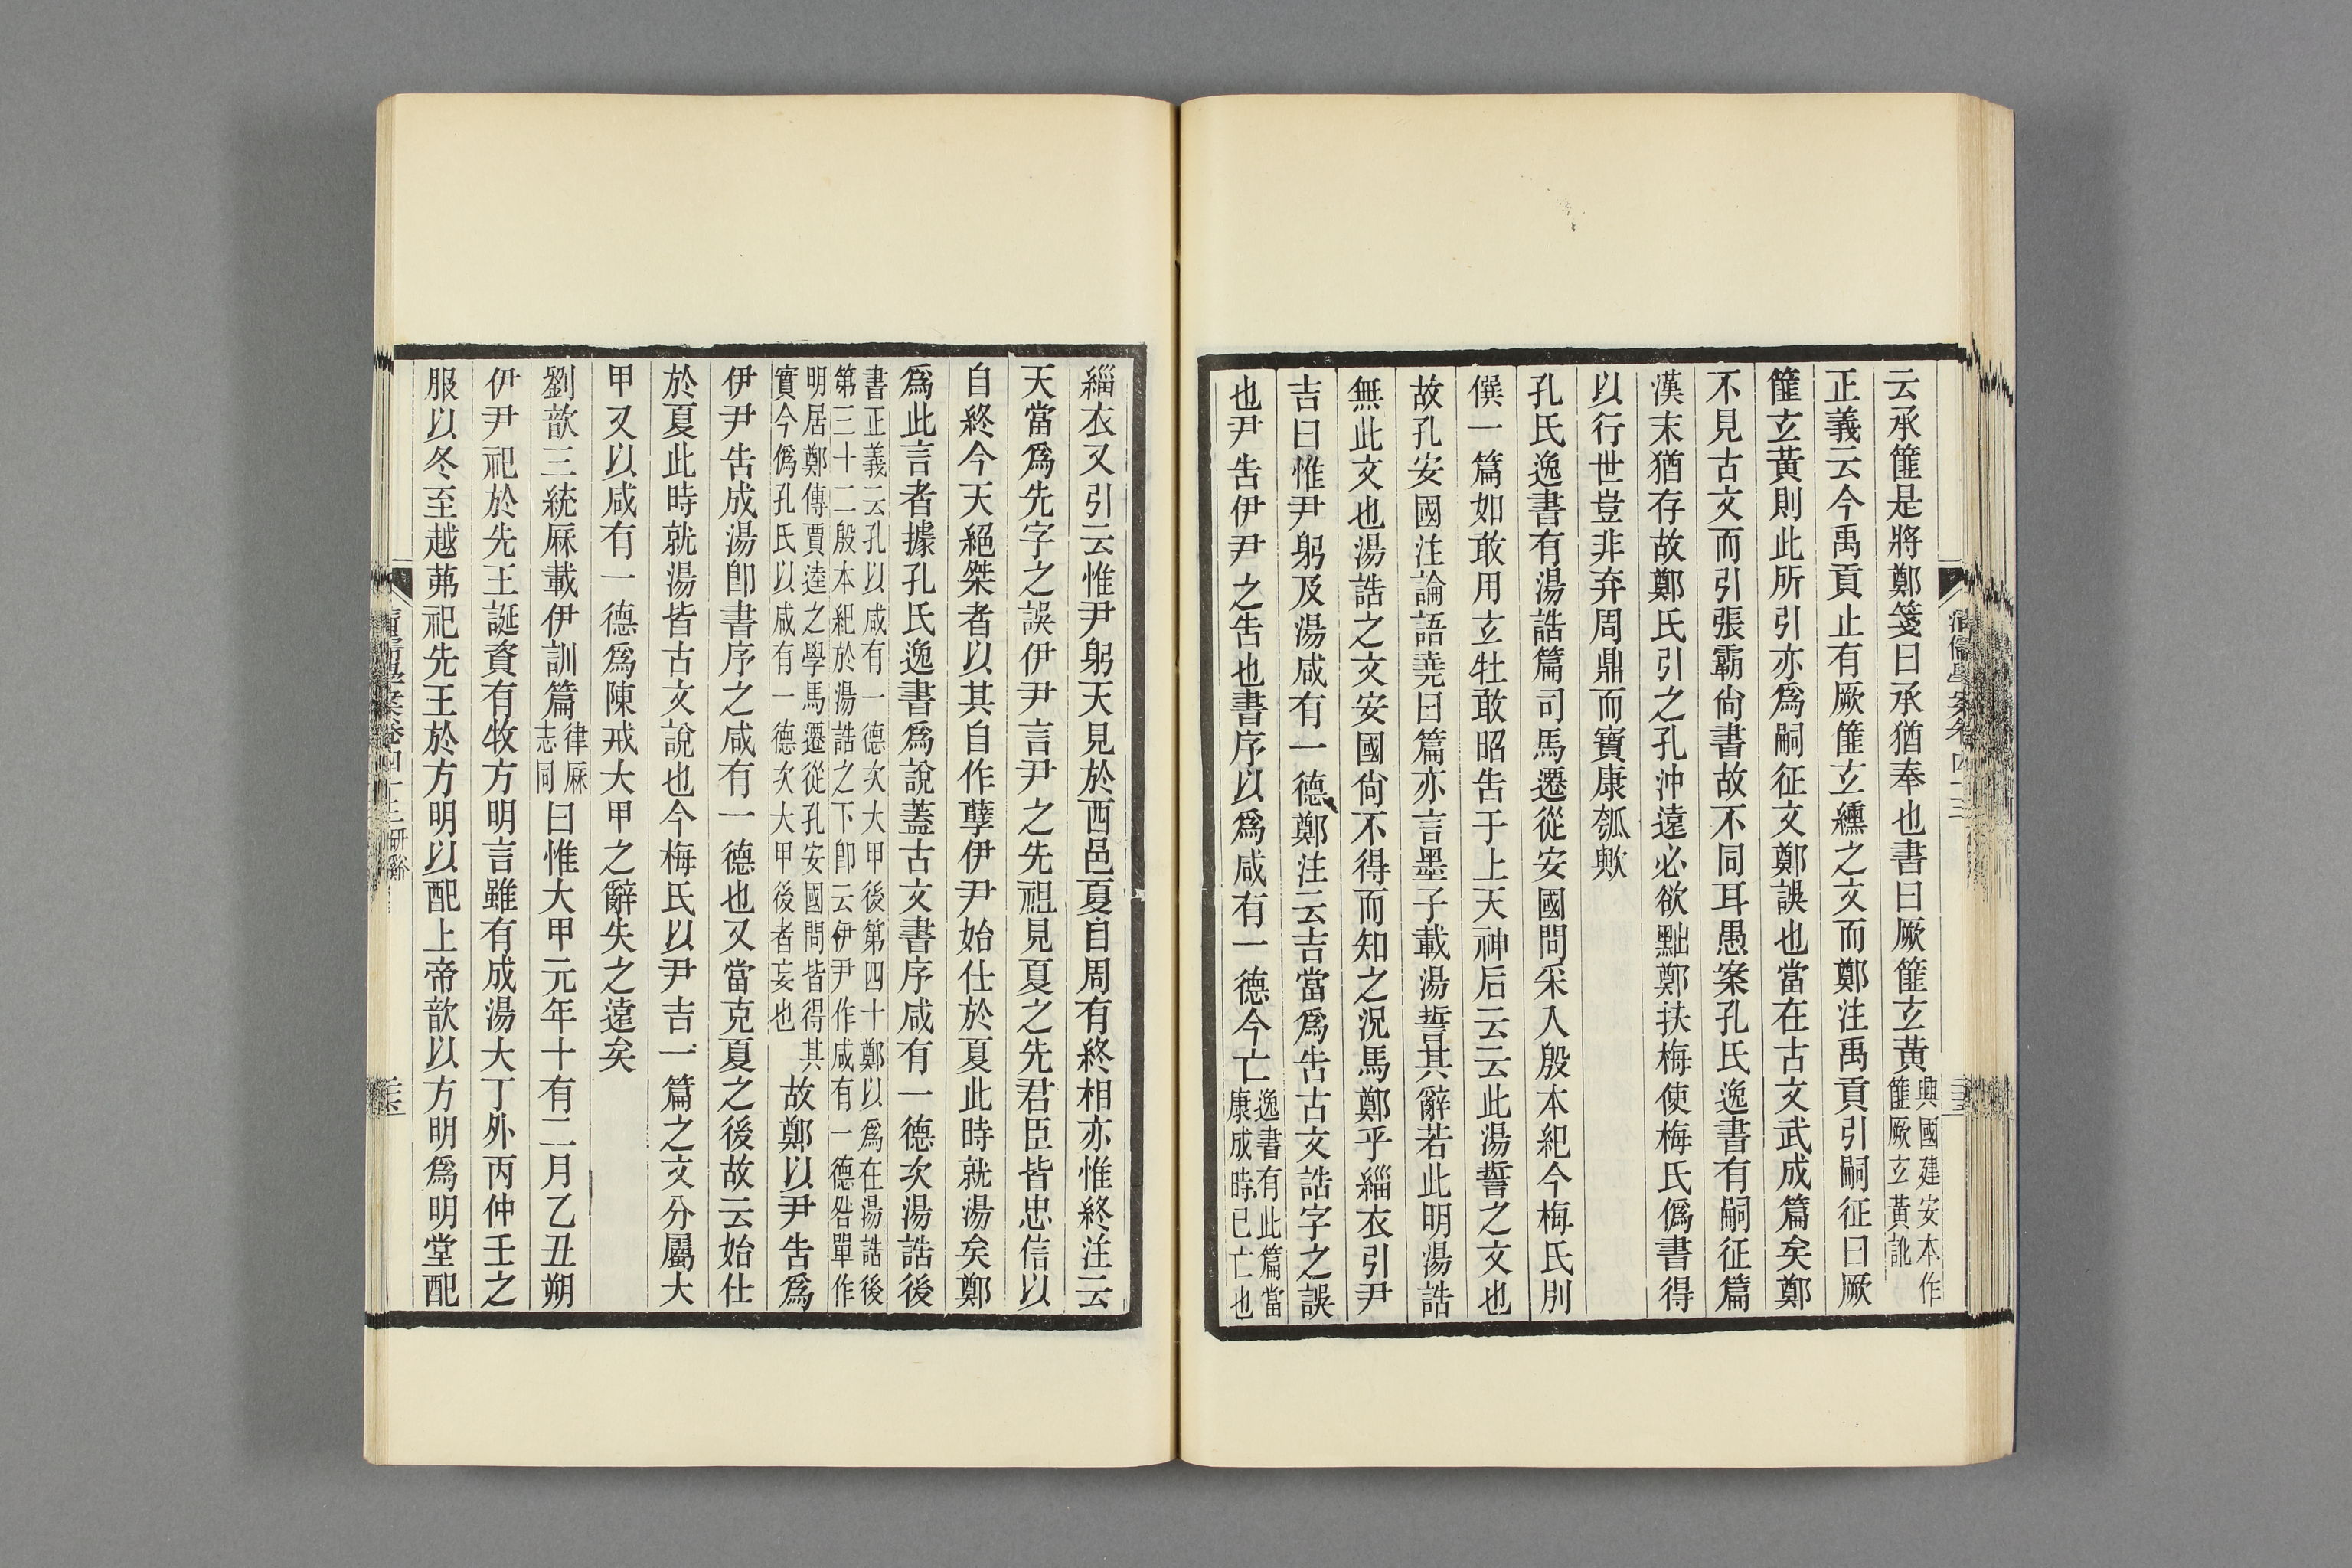 云承篚是將鄭箋曰承猶奉也書曰厥篚玄黃興國建安本作篚厥玄黃訛
正義云今禹貢止有厥篚玄纁之文而鄭注禹貢引嗣征曰厥
篚玄黃則此所引亦爲嗣征文鄭誤也當在古文武成篇矣鄭
不見古文而引張霸尙書故不同耳愚案孔氏逸書有嗣征篇
漢末猶存故鄭氏引之孔沖遠必欲黜鄭扶梅使梅氏僞書得
以行世豈非弃周鼎而寶康瓠歟
孔氏逸書有湯誥篇司馬遷從安國問采入殷本紀今梅氏別
僎一篇如敢用玄牡敢昭告于上天神后云云此湯誓之文也
故孔安國注論語堯曰篇亦言墨子載湯誓其辭若此明湯誥
無此文也湯誥之文安國尙不得而知之況馬鄭乎緇衣引尹
吉曰惟尹躬及湯咸有一德鄭注云吉當爲告古文誥字之誤
也尹告伊尹之告也書序以爲咸有一德今亡逸書有此篇當康成時已亡也
緇衣又引云惟尹躬天見於西邑夏自周有終相亦惟終注云
天當爲先字之誤伊尹言尹之先祖見夏之先君臣皆忠信以
自終今天絕桀者以其自作孽伊尹始仕於夏此時就湯矣鄭
爲此言者據孔氏逸書爲說蓋古文書序咸有一德次湯誥後
書正義云孔以咸有一德次大甲後第四十鄭以爲在湯誥後
第三十二殷本紀於湯誥之下卽云伊尹作咸有一德咎單作
明居鄭傳賈逵之學馬遷從孔安國問皆得其
實今僞孔氏以咸有一德次大甲後者妄也
故鄭以尹告爲
伊尹告成湯卽書序之咸有一德也又當克夏之後故云始仕
於夏此時就湯皆古文說也今梅氏以尹吉一篇之文分屬大
甲又以咸有一德爲陳戒大甲之辭失之遠矣
劉歆三統厤載伊訓篇律厤志同曰惟大甲元年十有二月乙丑朔
伊尹祀於先王誕資有牧方明言雖有成湯大丁外丙仲壬之
服以冬至越茀祀先王於方明以配上帝歆以方明爲明堂配